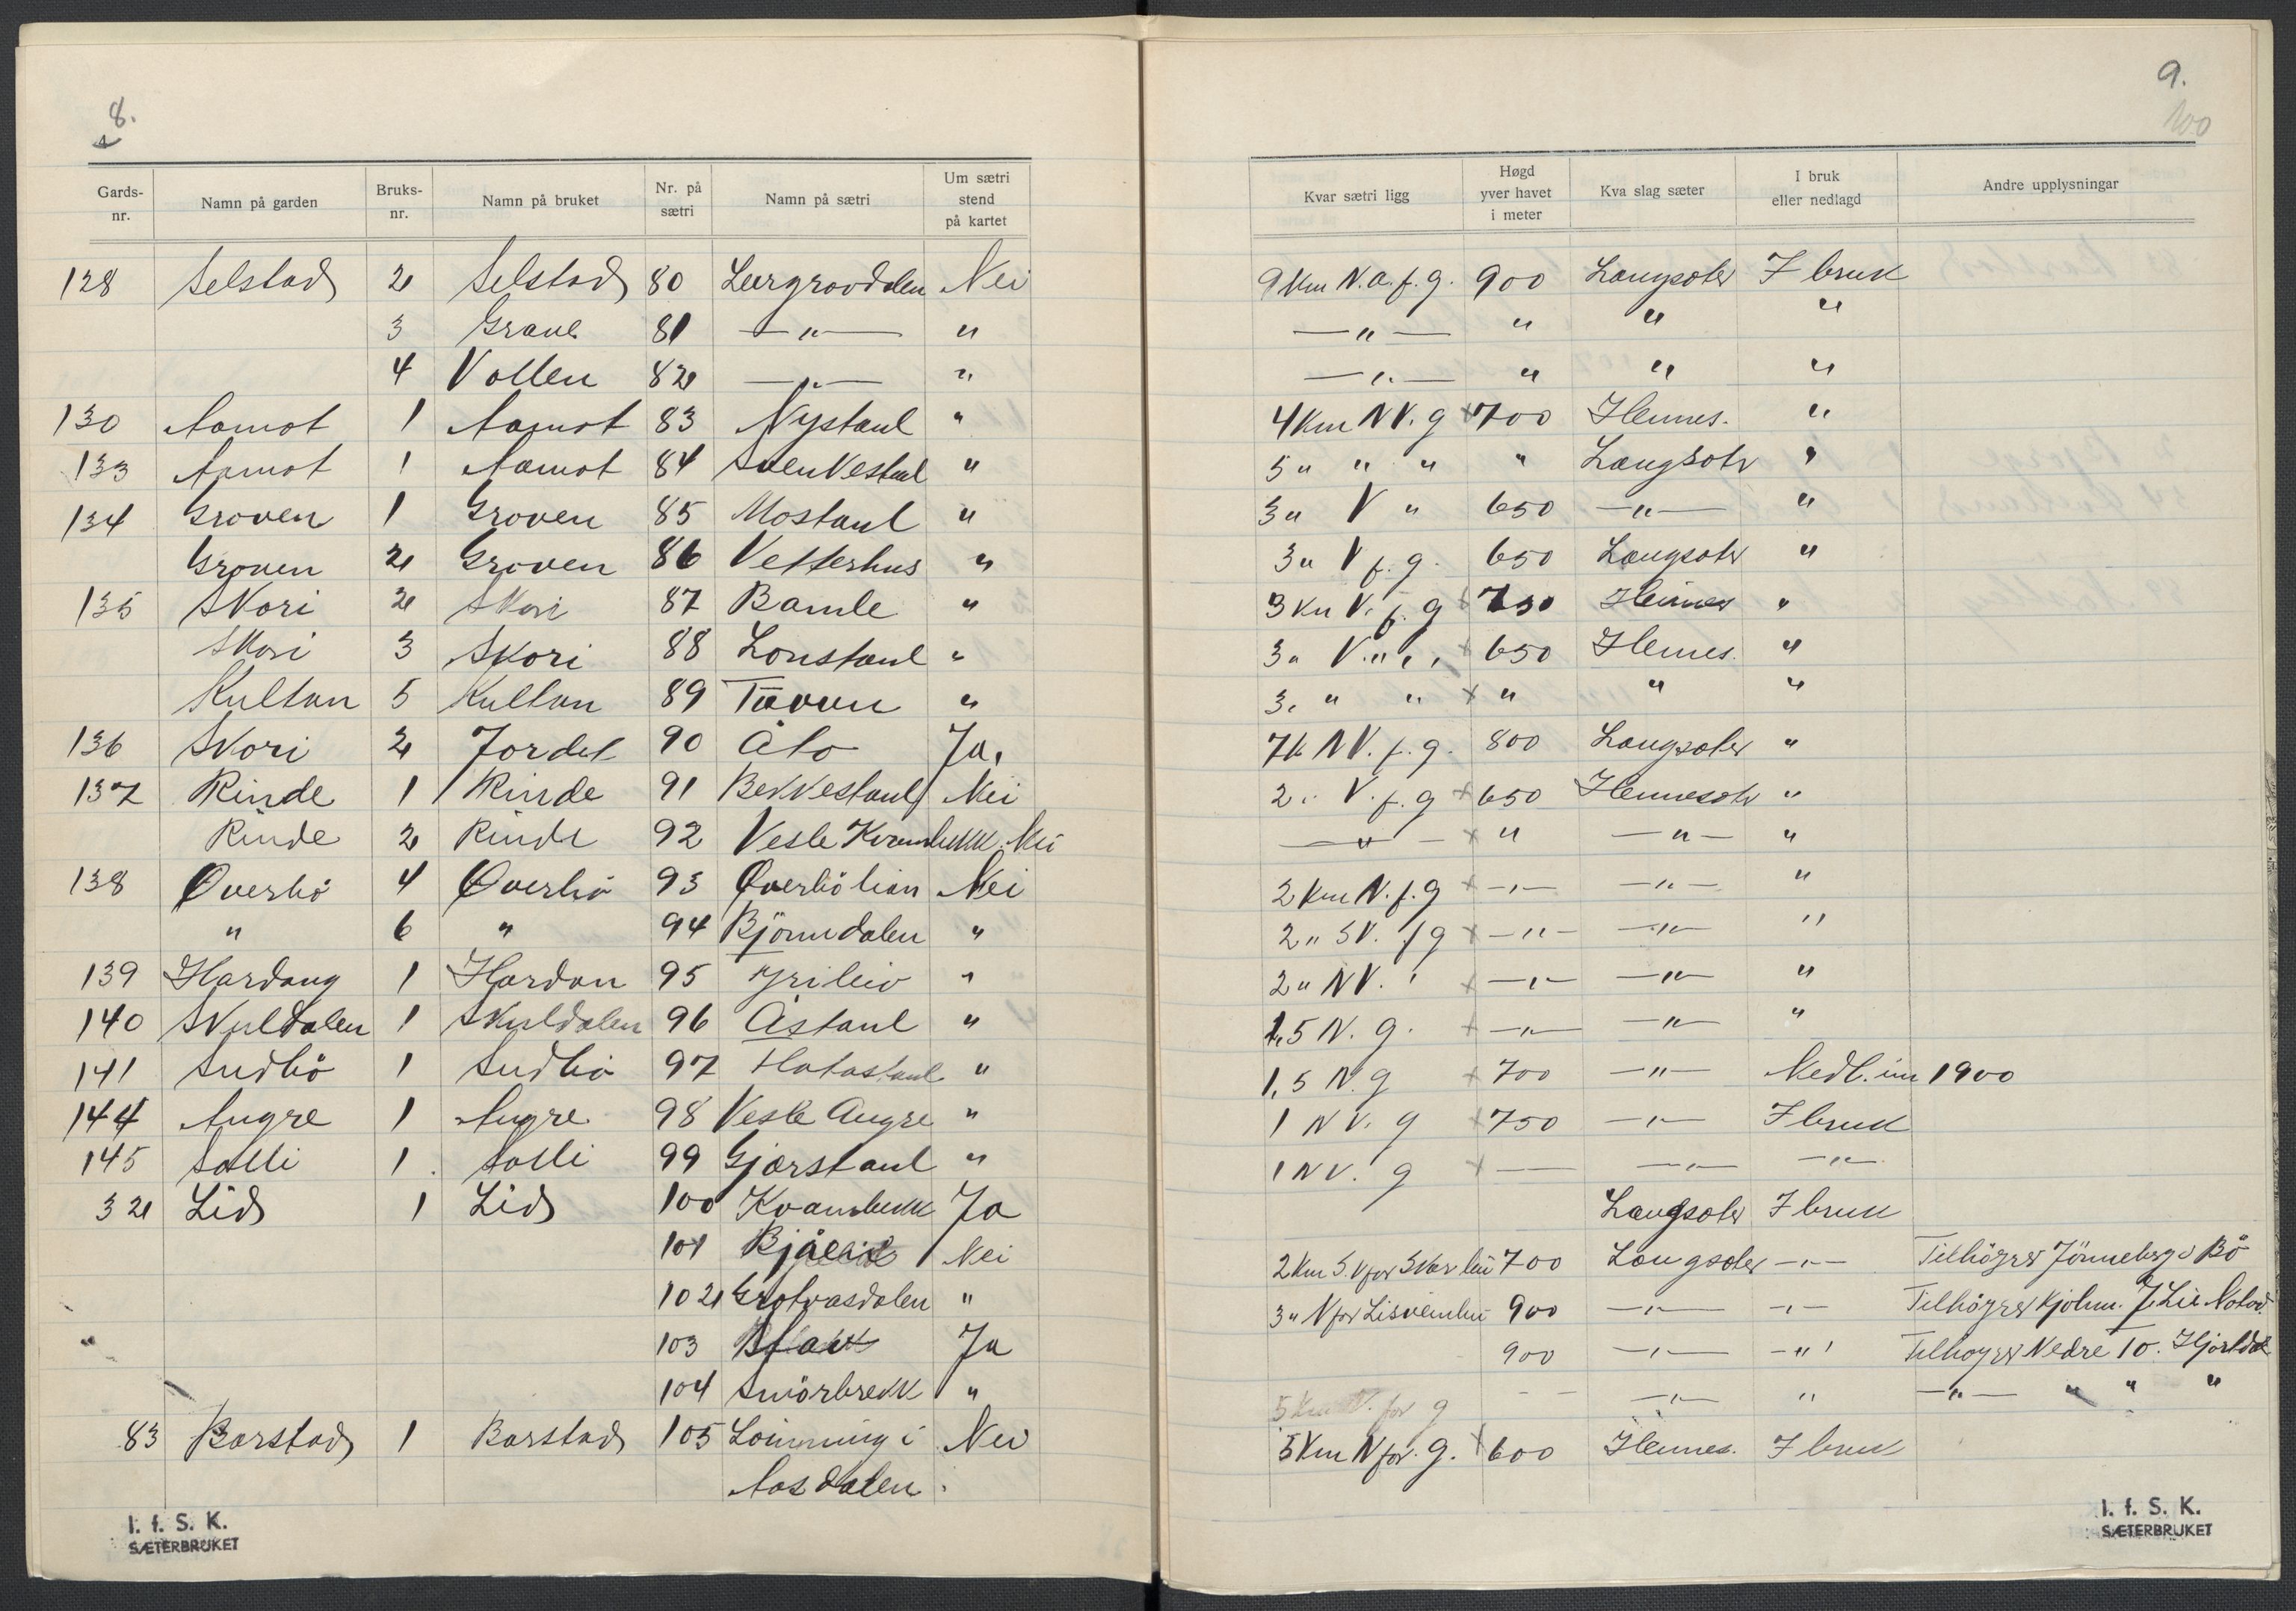 8.
Gards-nr. Namn på garden Bruks-nr. Namn på bruket Nr. på sætri Namn på sætri Um sætri stend på kartet
128 Selstad 2 Selstad 80 Leirgrovdalen Nei
3 Grave 81 —"— "
4 Vollen 82 —"— "
130 Aamot 1 Aamot 83 Nystaul "
133 Aamot 1 Aamot 84 "
134 Groven 1 Groven 85 Mostaul "
Groven 2 Groven 86 Vesterhus "
135 Skori 2 Skori 87 Bamle "
Skori 3 Skori 88 Lonstaul "
Kultan 5 Kultan 89 "
136 Skori 2 Jordet 90 Åto Ja.
137 Rinde 1 Rinde 91 Bekkestaul Nei
Rinde 2 Rinde 92 Vesle Kvambekk Nei
138 Overbö 4 Overbö 93 Overbölian Nei
" 6 " 94 Björndalen "
139 Hardang 1 Hardan 95 "
140 Skuldalen 1 Skuldalen 96 Åstaul "
141 Sudbö 1 Sudbö 97 Hatastaul "
144 Augre 1 Augre 98 Vesle Augre "
145 Solli 1. Solli 99 Gjorstaul "
32 Lid 1 Lid 100 Kvambekk Ja
101 Nei
102 Grotvasdalen "
103 Ja
104 Smörbrekk "
83 Barstad 1 Barstad 105 i Nei
Aasdalen
I. f. S. K.
SÆTERBRUKET
9.
100
Kvar sætri ligg Høgd yver havet i meter Kva slag sæter I bruk eller nedlagd Andre upplysningar
9 Km N.a.f.g. 900 Langsoter I bruk
—"— " " "
—"— " " "
4 Km NV. g x 700 Heimes. "
5 " " " " Langsotr "
3 " V " 650 —"— "
3 " V f. g. 650 Langsoter "
3 Km V. f. g 750 Heimes "
3 " V. " " x 650 Heimes. "
3 " " " x " " "
7 k NV. f. g. 800 Langsoter "
2 " V. f. g x 650 Heimesotr "
—"— x " —"— "
2 Km N. f. g x —"— —"— "
2 " SV. f g x —"— —"— "
2 " NV. " x —"— —"— "
1,5 N. g. x —"— —"— "
1,5 N. g x 700 —"— Nedl. um 1900
1 NV. g x 750 —"— I bruk
1 NV. g x — —"— —"—
Langsoter I bruk
2 Km S.V for 700 Langsoter —"— Tilhöyrer Jönneberg i Bö
3 " V for 900 —"— —"— Tilhöyrer Lie
900 —"— —"— Tilhöyrer Nedre 10. Hjartdal
5 Km N. for g - - —"— " —"— " " "
5 Km N for. g. x 600 Heimes. I bruk
I. f. S. K.
SÆTERBRUKET